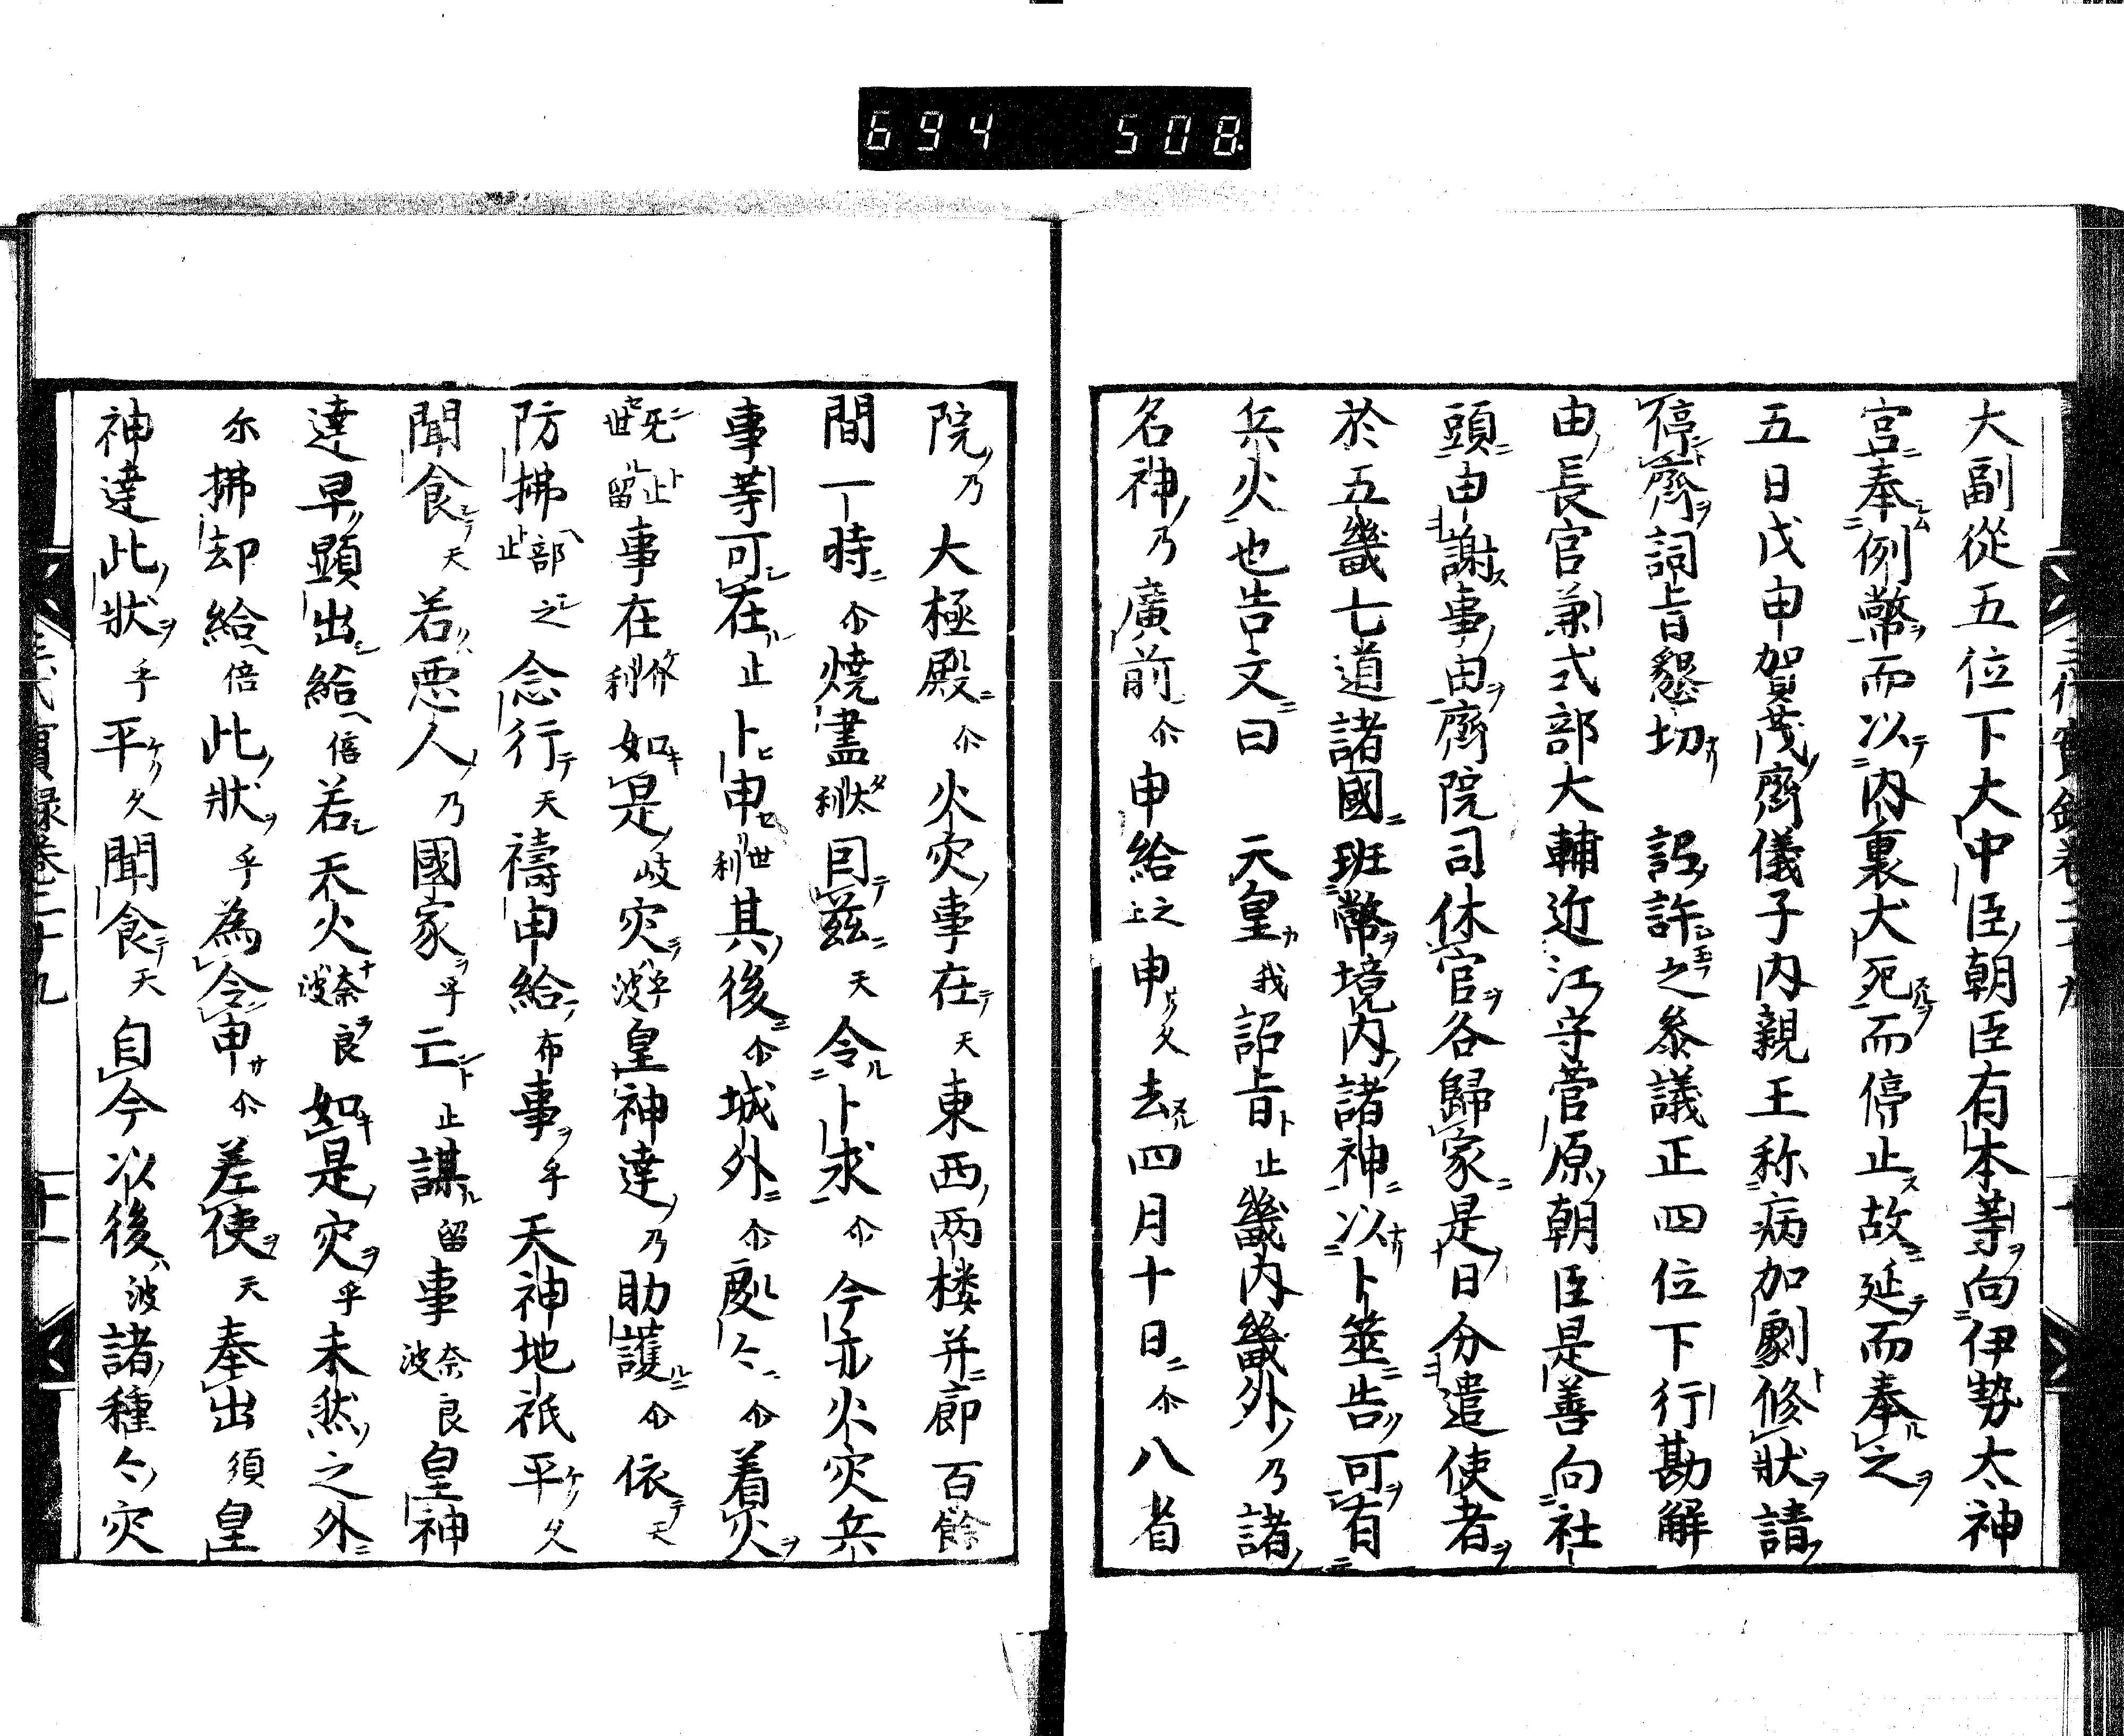 694 508
大副從五位下大中臣朝臣有本等向伊勢太神
宮奉例幣而以內裏犬死而停止故延而奉之
五日戊申賀茂齋儀子内親王称病加劇修狀請
停齋詞旨懇切 詔許之叅議正四位下行勘解
由長官兼式部大輔近江守菅原朝臣是善向社
頭申謝事由齋院司休官各歸家是日分遣使者
於五畿七道諸國班幣境内諸神以卜筮告可有
兵火也告文曰 天皇我詔旨止畿内畿外乃諸
名神乃廣前尓申給之止申久去四月十日尓八省
院乃大極殿尓火灾事在天東西兩楼并廊百餘
間一時尓燒盡太利因茲天令卜求尓今亦火灾兵
事等可在止卜申世利其後尓城外尓處々尓着火
死世止留事在介利如是岐灾乎波皇神達乃助護尓依天
防拂部止之念行天禱申給布事乎天神地祇平久
聞食天若惡人乃國家乎亡止謀留事奈良波皇神
達早顯出給倍若天火奈良波如是灾乎未然之外
尓拂却給倍此狀乎為令申尓差使天奉出須皇
神達此狀乎平久聞食天自今以後波諸種々灾
三代實録卷二十九 十
三代實録卷二十九 十一